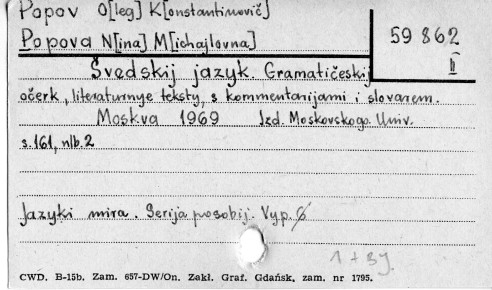 Popov O[leg] K[onstantinovič]
Popova N[ina] M[ichajlovna]
59 862
II
Švedskij jazyk. Gramatičeskij
očerk, literaturnye teksty, s kommentarijami i slovarem.
Moskva 1969 Izd. Moskovskogo. Univ.
s. 161, nlb. 2
Jazyki mira. Serija posobij. Vyp.
CWD. B-15b. Zam. 657-DW/On. Zakł. Graf. Gdańsk, zam. nr 1795.